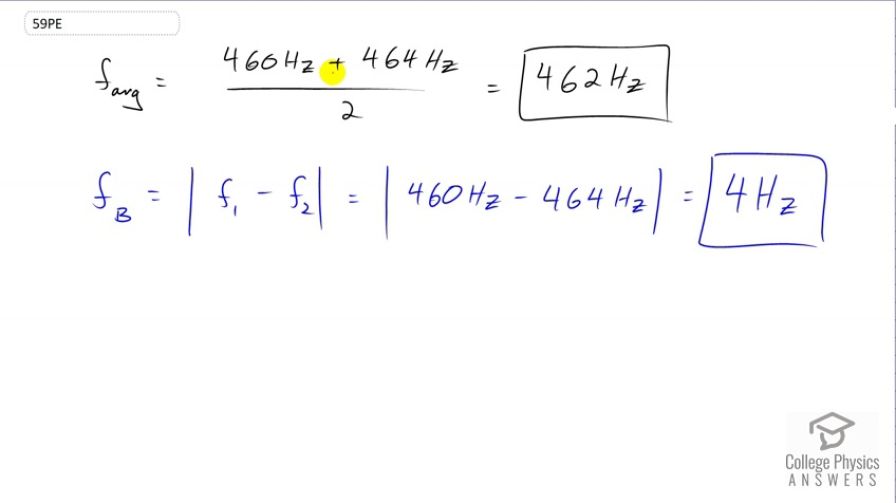 59PE
f_avg = (460 Hz + 464 Hz) / 2 = 462 Hz
f_B = |f_1 - f_2| = |460 Hz - 464 Hz| = 4 Hz
College Physics
ANSWERS